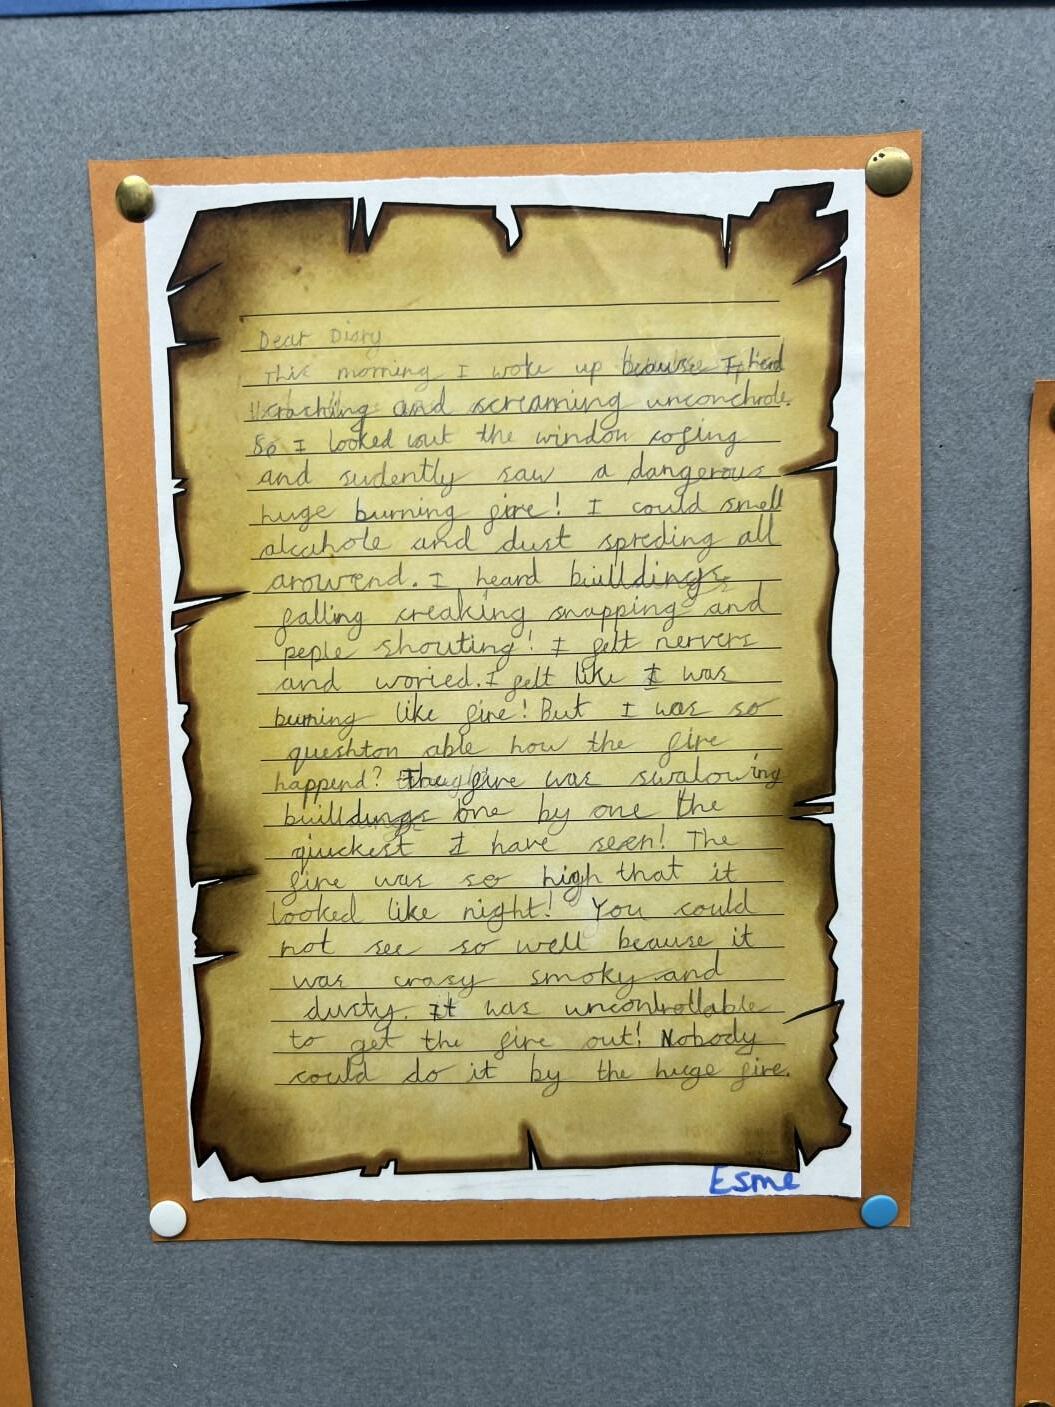 Dear Diary
This morning I woke up because I heard
crachling and screaming unconchrole.
So I looked out the window cofing
and sudently saw a dangerous
huge burning fire! I could smell
alcahole and dust spreding all
arowend. I heard buildings
falling creaking snapping and
peple shouting! I felt nervers
and woried. I felt like I was
burning like fire! But I was so
queshton able how the fire
happend? The fire was swalowing
buildings one by one the
qiuckest I have seen! The
fire was so high that it
looked like night! You could
not see so well beause it
was crasy smoky and
dusty. It was uncontrollable
to get the fire out! Nobody
could do it by the huge fire.
Esme